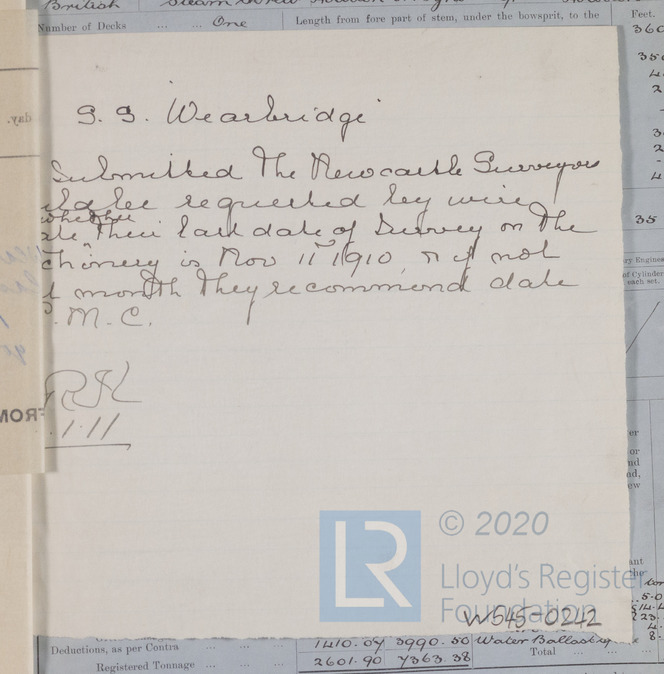 British Steam Screw
Number of Decks ... ... One Length from fore part of stem, under the bowsprit, to the Feet.
360
35
S.S. "Wearbridge"
Submitted the Newcastle Surveyors
be requested by wire
whether
their last date of Survey on the
chinery is Nov 11th 1910, & if not
month they recommend date
M.C.
1.11
day.
FROM
35
ry Engines
of Cylinder
each set.
er
or
nd
nd,
ew
ant
the
© 2020
LR
Lloyd's Register
Foundation
W545-0242
Deductions, as per Contra ... ... ... 1410.07 3990.50 Water Ballast
Registered Tonnage ... ... ... 2601.90 7363.38 Total ... ...